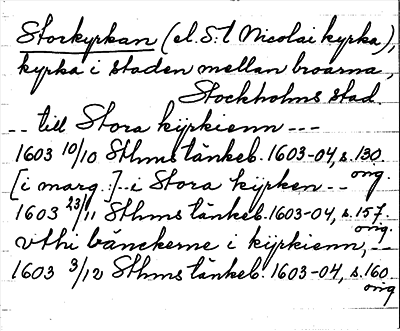 Storkyrkan (el. S:t Nicolai kyrka),
kyrka i staden mellan broarna,
Stockholms stad.
-- till Stora kÿrkienn ---
1603 10/10 Sthms tänkeb. 1603-04, s. 130.
orig.
[i marg.:] -- i Stora kÿrken --
1603 23/11 Sthms tänkeb. 1603-04, s. 157.
orig.
vthi bänckerne i kÿrkienn, --
1603 3/12 Sthms tänkeb. 1603-04, s. 160
orig